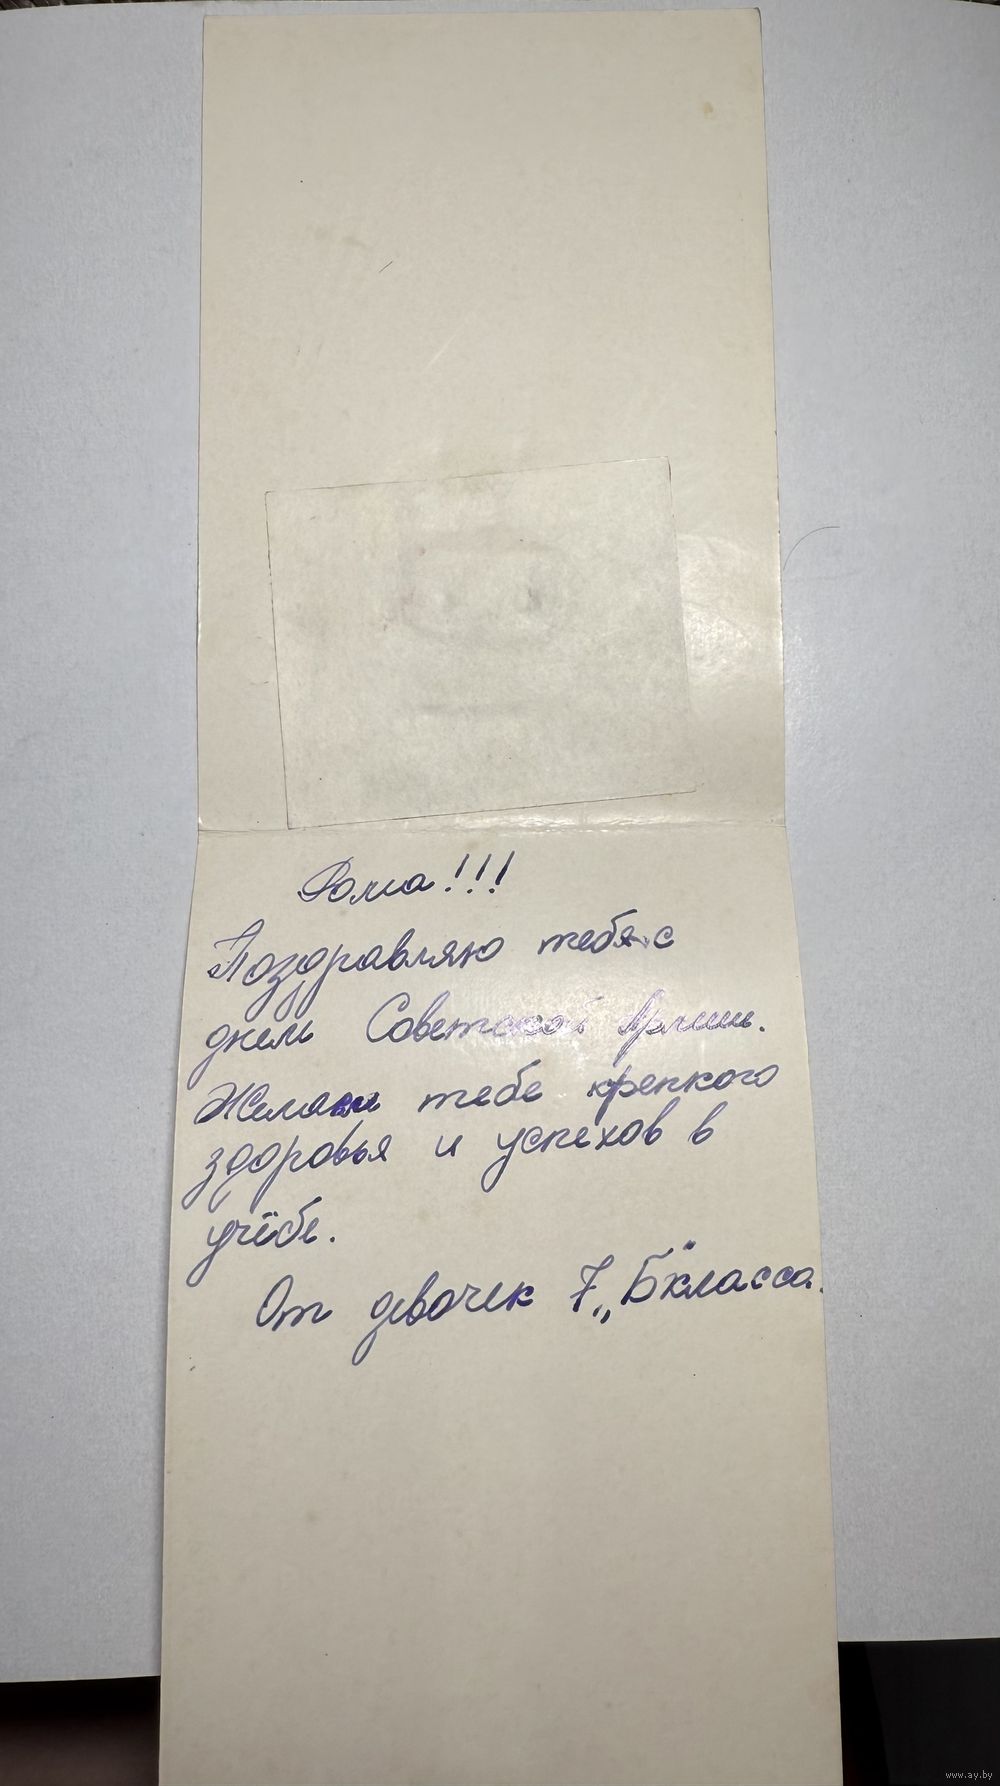 Рома!!!
Поздравляю тебя с
днём Советской Армии.
Желаем тебе крепкого
здоровья и успехов в
учёбе.
От девочек 7 „Б" класса.
www.ay.by